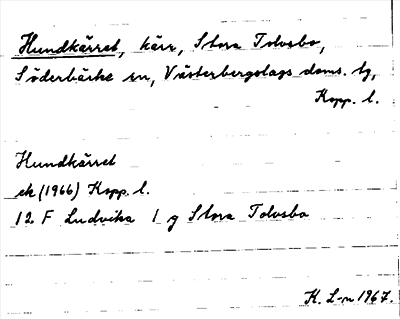 Hundkärret, kärr, Stora Tolvsbo,
Söderbärke sn, Västerbergslags doms. tg,
Kopp. l.
Hundkärret
ek (1966) Kopp. l.
12 F Ludvika 1 g Stora Tolvsbo
K. L-n 1967.